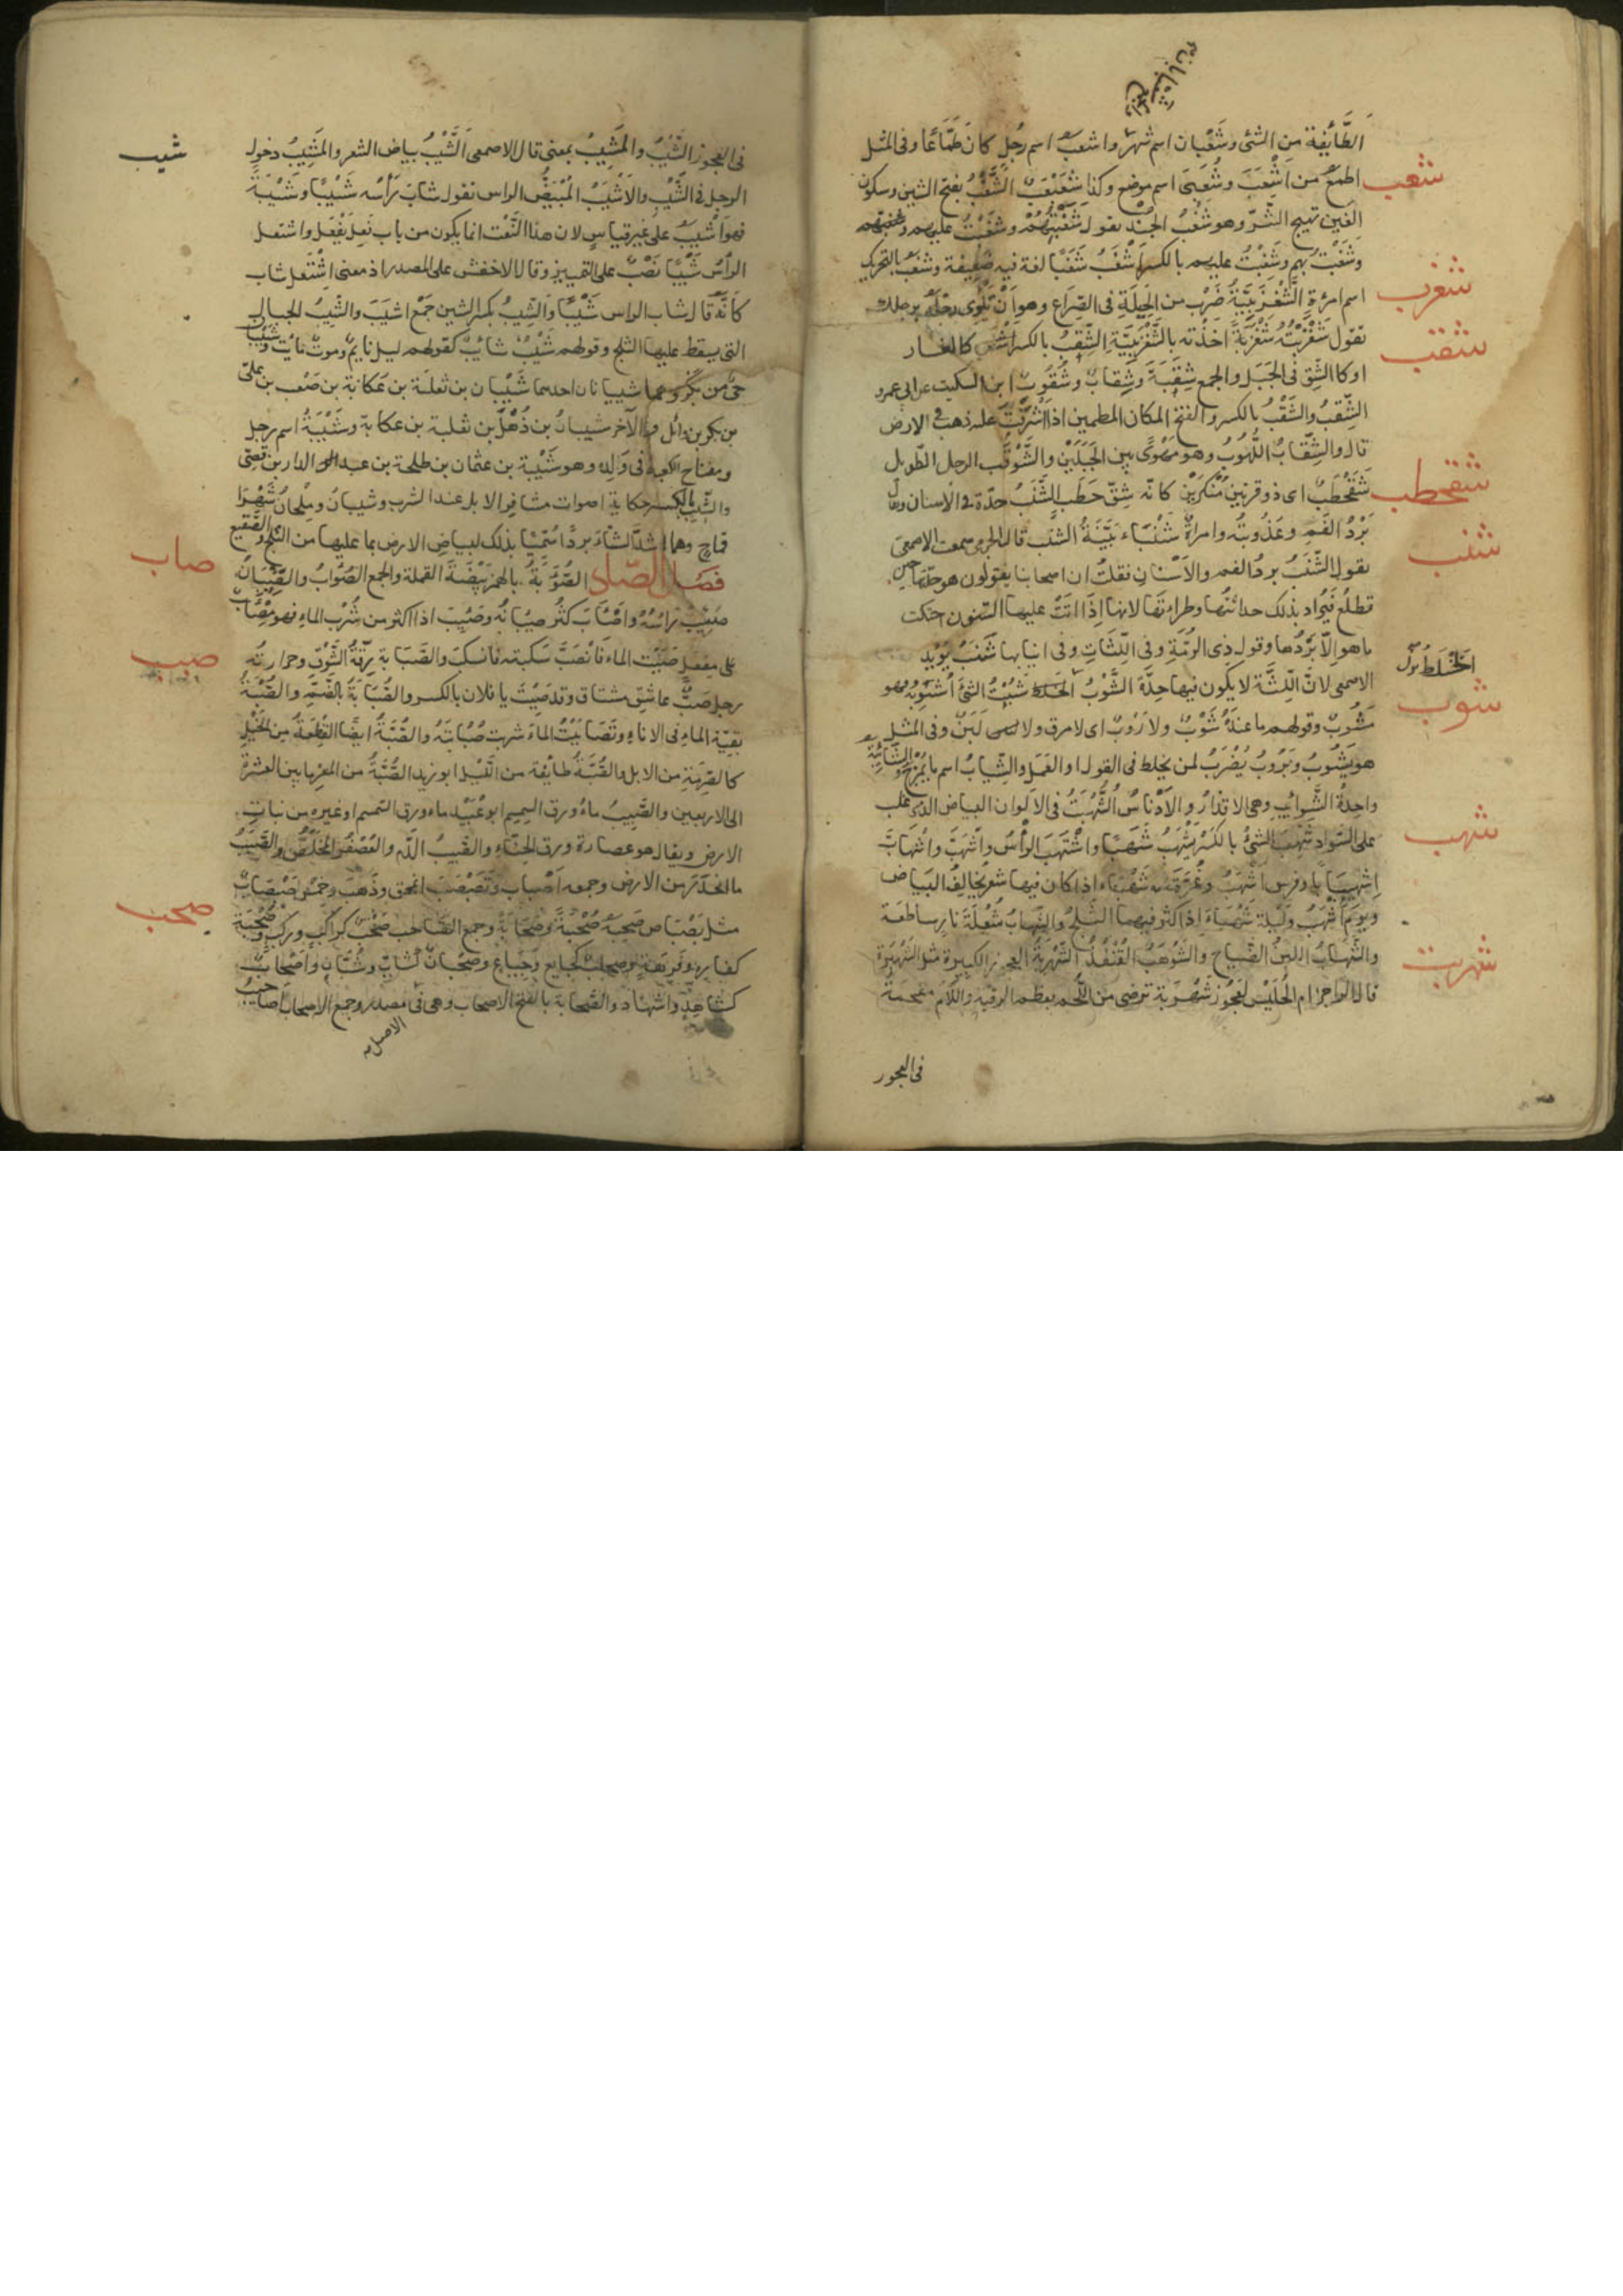 الطَّائِفة من الشئ وشَعْبان اسم شهر واشعبُ اسم رجُل كان طَمَّاعًا وفى المثل
شغب
اطمعُ من اَشْعَبَ وشُعَبَى اسم موضع وكذا شَعَبْعَبٌ الشَّغْبُ بفتح الشين وسكون
الغين تهيج الشّرّ وهو شَغْبُ الجُنْد تقول شَغَبْتُهُمْ وشَغَبْتُ عليهم
وشَغَبْتُ بهم وشَغِبْتُ عليهم بالكسر اَشْغَبُ شَغَبًا لغة فيه ضعيفة وشغبُ بالتحريك
شغزب
اسم امرءة الشَّغْزَبِيَّةُ ضَرْب من الحِيلَةِ فى الصِّرَاع وهو اَنْ تَلْوِى رِجْلَهُ برجلك
شقب
تقول شَغْزَبْتُهُ شَغْزَبَةً اخذته بالشَّغْزَبِيَّةِ الشِّقْبُ بالكسر كالغار
اوكالشِّق فى الجَبَل والجمع شِقَبَةٌ وشِقابٌ وشُقُوبٌ ابن السكيت عن ابى عمرو
الشِّقبُ والشَّقْبُ بالكسر والفتح المكان المطمئن اذا اَشْرَفْتَ عليه ذهب فى الارض
قال والشِّقَابُ اللُّهُوبُ وهو مَهْوًى بين الجَبَلَيْن والشَّوْقَب الرجل الطّويل
شقحطب
شَقَحْطَبٌ اى ذو قرنين مُنْكَرَيْن كانّه شِقّ حَطَبٍ الشَّنَبُ حدّة فى الاسنان ويقال
شنب
بَرْدُ الفَمِ وعَذُوبتُه وامراةٌ شَنْبَاء بَيِّنَةُ الشنَب قال الجرمى سمعت الاصمعىّ
يقول الشَّنَبُ بردُ الفم والاَسْنانِ فقلتُ ان اصحابنا يقولون هو حدّتها حين
تطلُع فيُراد بذلك حداثتُها وطراءتَها لانها اِذَا اتَتْ عليها السّنون احتكت
ماهو الاّ بَرْدُها وقول ذى الرمّةِ وفى اللِّثَاتِ وفى انيابها شَنَبُ يؤيد
الخَلْطُ بدل
شوب
الاصمعى لانّ اللِّثَةَ لا يكون فيها حِدّة الشَّوْبُ الخَلط شُبْتُ الشئَ اَشُوبُه فهو
مَشُوبٌ وقولهم ماعندَهُ شَوْبٌ ولا رَوْبٌ اى لا مرق ولا لَبَنٌ وفى المثل
هو يَشُوبُ ويَرُوبُ يُضْرَبُ لمن يخلط فى القول او العَمَل والشِّيابُ اسم ما يُمْزَج والشَّائِبَة
واحِدةُ الشَّوائِب وهى الاقذارُ والاَدْناسُ الشُّهْبَةُ فى الالوان البياض الذى غلب
شهب
على السّواد شَهِبَ الشئُ بالكسر يَشْهَبُ شَهَبًا واشْتَهَبَ الرأس واَشْهَبَ واشْهَابَّ
اِشْهِيبَابًا وفرس اَشْهَبُ وغُرَّةٌ شَهْبَاءُ اذا كان فيها شعرٌ يخالِفُ البَياض
ويومٌ اَشْهَبُ ولَيْلة شَهْبَاءُ اذا كثر فيهما الثَّلجُ والشِّهابُ شُعْلَةُ نارٍ ساطعَة
شهرب
والشَّهَابُ اللبنُ الضّياح والشَّوْهَبُ القُنْفُذُ الشَّهْرَبَةُ العجوز الكبيرة مثل الشَّهْبَرَةِ
قال الراجز ام الحُلَيْسِ لعجُوز شَهْرَبَة ترضى من اللَّحم بعظم الرقبة واللام مقحمةٌ
فى العجوز
شيب
فى العجوز الشَّيْبُ والمَشِيبُ بمعنى قال الاصمعى اَلشَّيْبُ بياض الشعر والمَشِيبُ دخول
الرجل فى الشَّيْبِ والاَشْيَبُ المُبْيَضُّ الراس تقول شابَ رَأسُه شَيْبًا وشَيْبَةً
فهو اَشْيَبُ على غير قياسٍ لان هذا النَّعْت انما يكون من باب فَعِلَ يَفْعَل واشتعل
الرأسُ شَيْبًا نَصْبٌ على التمييز وقال الاخفش على المصدر اذ معنى اشْتَعَل شاب
كاَنَّهُ قال شاب الراس شَيْبًا والشِّيبُ بكسر الشين جَمْع اشيَبَ والشِّيبُ الجبال
التى يسقط عليها الثلج وقولهم شَيْبٌ شائبٌ كقولهم ليل نايم وموتٌ مائت وشَيْبَانُ
حىٌّ من بَكْرٍ وهما شيبانان احدهما شَيْبان بن ثعلَبَة بن عكابة بن صَعْب بن علىّ
بن بكر بن وائل والآخر شيبانُ بن ذُهْل بن ثعلبة بن عكابة وشَيْبَةُ اسم رجل
ومفتاح الكعبة فى وَلَدِه وهو شَيْبة بن عثمان بن طلحة بن عبد الدار بن قصىّ
والشِّيبُ بالكسر حكاية اصوات مشافر الابل عند الشرب وشيبانُ ومِلْحانُ شَهْرَا
قِماحٍ وهما اشدُّ الشتَاءِ بردًا سُمِّيَا بذلك لبياض الارض بما عليها من الثلج والصَّقيع
صاب
فصل الصّاد الصُّؤَابَةُ بالهمز بَيْضَةُ القملة والجمع الصُّؤابُ والصِّئْبَانُ
صَئِبَ رَاسُهُ واَصْأَبَ كثُر صِئبانُه وصَئِبَ اذا اكثر من شُرْب الماء فهو مِصْأَبٌ
صبب
على مِفعلٍ صَبَبْت الماء فانْصَبَّ سكبته فانسكَبَ والصَّبَابة رِقَّةُ الشَّوْقِ وحرارتُه
رجل صَبٌّ عاشقٌ مشتاق وقد صَبِبْتَ يا فلان بالكسر والصُّبَابَةُ بالضّمّ والصُّبَّةُ
بقيّة الماء فى الاناءِ وتَصَابَبْتُ الماءَ شربت صُبَابَتَه والصُّبَّةُ ايضًا القِطْعَةُ مِن الخَيْلِ
كالصِّرْمَةِ من الابل والصُّبَّةُ طائفة من اللَّيل ابو زيد الصُّبَّةُ من المعز ما بين العشرة
الى الاربعين والصَّبِيبُ ماءُ ورق السمسم ابو عُبَيْد ماء ورق السمسم او غيره من نبات
الارض ويقال هو عصارة ورق الحِنّاء والصَّبِيبُ الدَّم والعُصْفُر المخلصُ والصَّبَبُ
ما انحدَر من الارض وجمعه اَصْباب وتَصَبْصَبَ انمحق وذَهَب وخِمْسٌ صَبْصَابٌ
صحب
مثل بَصْبَاص صَحِبَهُ صُحْبَةً وصَحَابَةً وجمع الصّاحب صَحْبٌ كراكبٍ وركْبٍ وصُحْبَة
كفارِهٍ وفُرْهَةٍ وصِحابٌ كجايع وجِياعٍ وصُحْبَانٌ كشابٍّ وشُبَّانٍ واَصْحابٌ
كشاهدٍ واَشهادٍ والصَّحابة بالفتح الاصحاب وهى فى الاصل مصدر وجمع الاصحاب اصاحيبُ